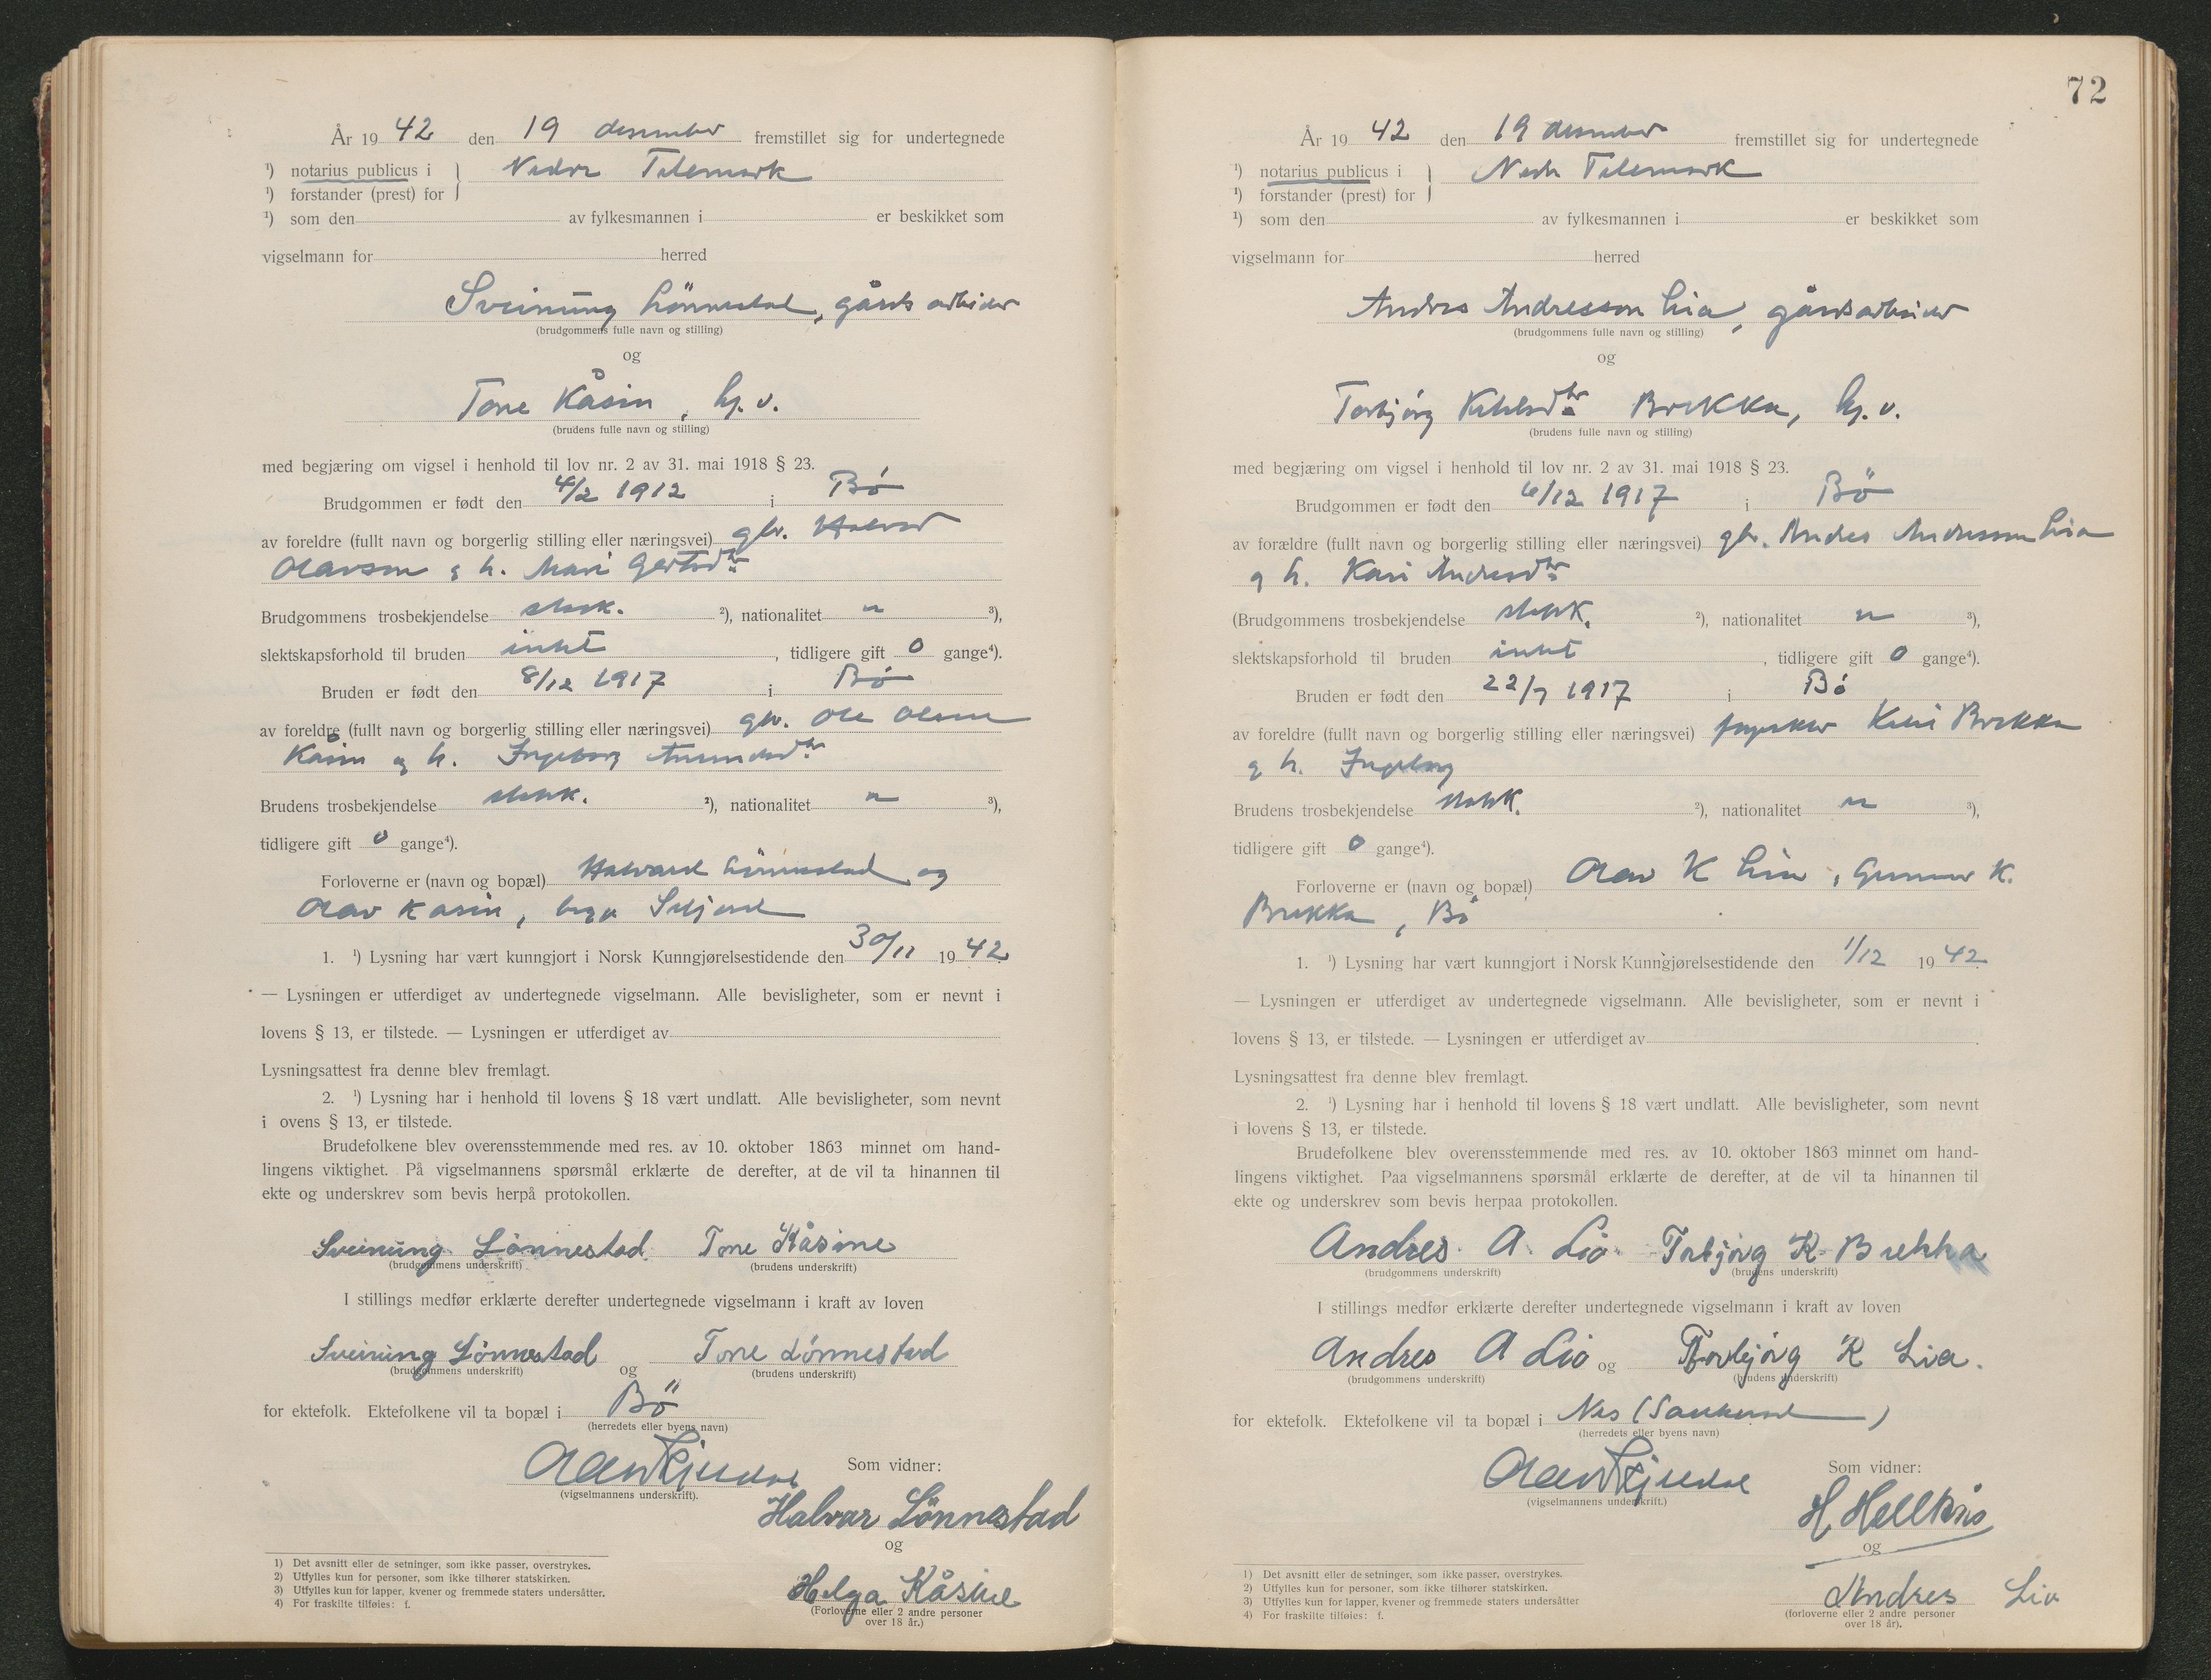 År 19 42 den 19 desember fremstillet sig for undertegnede
¹) notarius publicus i } Nedre Telemark
¹) forstander (prest) for
¹) som den av fylkesmannen i er beskikket som
vigselmann for herred
Sveinung Lönnestad, gårdsarbeider
(brudgommens fulle navn og stilling)
og
Tone Kåsin, hj. v.
(brudens fulle navn og stilling)
med begjæring om vigsel i henhold til lov nr. 2 av 31. mai 1918 § 23.
Brudgommen er født den 4/2 1912 i Bö
av foreldre (fullt navn og borgerlig stilling eller næringsvei) gbr. Halvord
Olavson og h. Mari
Brudgommens trosbekjendelse statsk. ²), nationalitet n ³),
slektskapsforhold til bruden intet, tidligere gift 0 gange⁴).
Bruden er født den 8/12 1917 i Bö
av foreldre (fullt navn og borgerlig stilling eller næringsvei) gbr. Ole Olsen
Kåsin og h. Ingeborg
Brudens trosbekjendelse statsk. ²), nationalitet n ³),
tidligere gift 0 gange⁴).
Forloverne er (navn og bopæl) Halvard Lönnestad og
Olav Kasin, begge Seljord
1. ¹) Lysning har vært kunngjort i Norsk Kunngjørelsestidende den 30/11 19 42
— Lysningen er utferdiget av undertegnede vigselmann. Alle bevisligheter, som er nevnt i
lovens § 13, er tilstede. — Lysningen er utferdiget av
Lysningsattest fra denne blev fremlagt.
2. ¹) Lysning har i henhold til lovens § 18 vært undlatt. Alle bevisligheter, som nevnt
i ovens § 13, er tilstede.
Brudefolkene blev overensstemmende med res. av 10. oktober 1863 minnet om hand-
lingens viktighet. På vigselmannens spørsmål erklærte de derefter, at de vil ta hinannen til
ekte og underskrev som bevis herpå protokollen.
Sveinung Lönnestad Tone Kåsine
(brudgommens underskrift) (brudens underskrift)
I stillings medfør erklærte derefter undertegnede vigselmann i kraft av loven
Sveinung Lönnestad og Tone Lönnestad
(brudgommens underskrift) (brudens underskrift)
for ektefolk. Ektefolkene vil ta bopæl i Bö
(herredets eller byens navn)
Som vidner:
(vigselmannens underskrift).
Halvar Lönnestad
og
Helga Kåsine
(Forloverne eller 2 andre personer
over 18 år.)
1) Det avsnitt eller de setninger, som ikke passer, overstrykes.
2) Utfylles kun for personer, som ikke tilhører statskirken.
3) Utfylles kun for lapper, kvener og fremmede staters undersåtter.
4) For fraskilte tilføies: f.
72
År 19 42 den 19 desember fremstillet sig for undertegnede
¹) notarius publicus i } Nedre Telemark
¹) forstander (prest) for
¹) som den av fylkesmannen i er beskikket som
vigselmann for herred
Andres Andresson Lia, gårdsarbeider
(brudgommens fulle navn og stilling)
og
Torbjörg Brekka, hj. v.
(brudens fulle navn og stilling)
med begjæring om vigsel i henhold til lov nr. 2 av 31. mai 1918 § 23.
Brudgommen er født den 6/12 1917 i Bö
av forældre (fullt navn og borgerlig stilling eller næringsvei) gbr. Andres Andresson Lia
og h. Kari Andresdtr
(Brudgommens trosbekjendelse statsk. ²), nationalitet n ³),
slektskapsforhold til bruden intet, tidligere gift 0 gange⁴).
Bruden er født den 22/7 1917 i Bö
av foreldre (fullt navn og borgerlig stilling eller næringsvei) Brekka
og h. Ingeborg
Brudens trosbekjendelse statsk. ²), nationalitet n ³),
tidligere gift 0 gange⁴).
Forloverne er (navn og bopæl) Olav K Lia, Gunnar K.
Brekka, Bö
1. ¹) Lysning har vært kunngjort i Norsk Kunngjørelsestidende den 1/12 19 42
— Lysningen er utferdiget av undertegnede vigselmann. Alle bevisligheter, som er nevnt i
lovens § 13, er tilstede. — Lysningen er utferdiget av
Lysningsattest fra denne blev fremlagt.
2. ¹) Lysning har i henhold til lovens § 18 vært undlatt. Alle bevisligheter, som nevnt
i lovens § 13, er tilstede.
Brudefolkene blev overensstemmende med res. av 10. oktober 1863 minnet om hand-
lingens viktighet. Paa vigselmannens spørsmål erklærte de derefter, at de vil ta hinannen til
ekte og underskrev som bevis herpaa protokollen.
Andres A. Lia Torbjörg K Brekka
(brudgommens underskrift) (brudens underskrift)
I stillings medfør erklærte derefter undertegnede vigselmann i kraft av loven
Andres A Lia og Torbjörg K Lia.
(brudgommens underskrift) (brudens underskrift)
for ektefolk. Ektefolkene vil ta bopæl i Nes (Sauherad)
(herredets eller byens navn)
Som vidner:
(vigselmannens underskrift.)
H. Hellkås
og
Andres Lia
(forloverne eller 2 andre personer
over 18 år).
1) Det avsnitt eller de setninger, som ikke passer, overstrykes.
2) Utfylles kun for personer, som ikke tilhører statskirken.
3) Utfylles kun for lapper, kvener og fremmede staters undersåtter
4) For fraskilte tilføies: f.